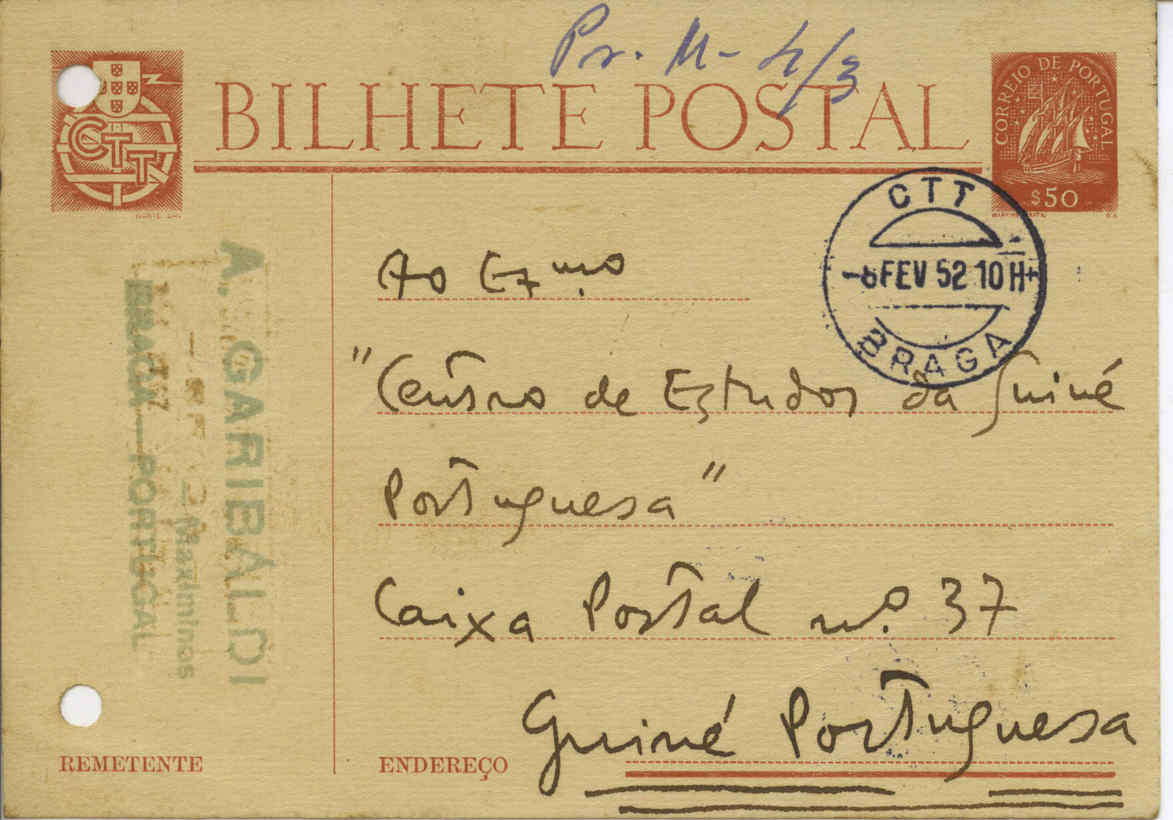 Pr. M-4/3
CTT
BILHETE POSTAL
CORREIO DE PORTUGAL
$50
CTT
-6 FEV 52 10H
BRAGA
Ao Exmo
"Centro de Estudos da Guiné
Portuguesa"
Caixa Postal n.º 37
Guiné Portuguesa
A. GARIBÁLDI
Maximinos
BRAGA — PORTUGAL
REMETENTE
ENDEREÇO